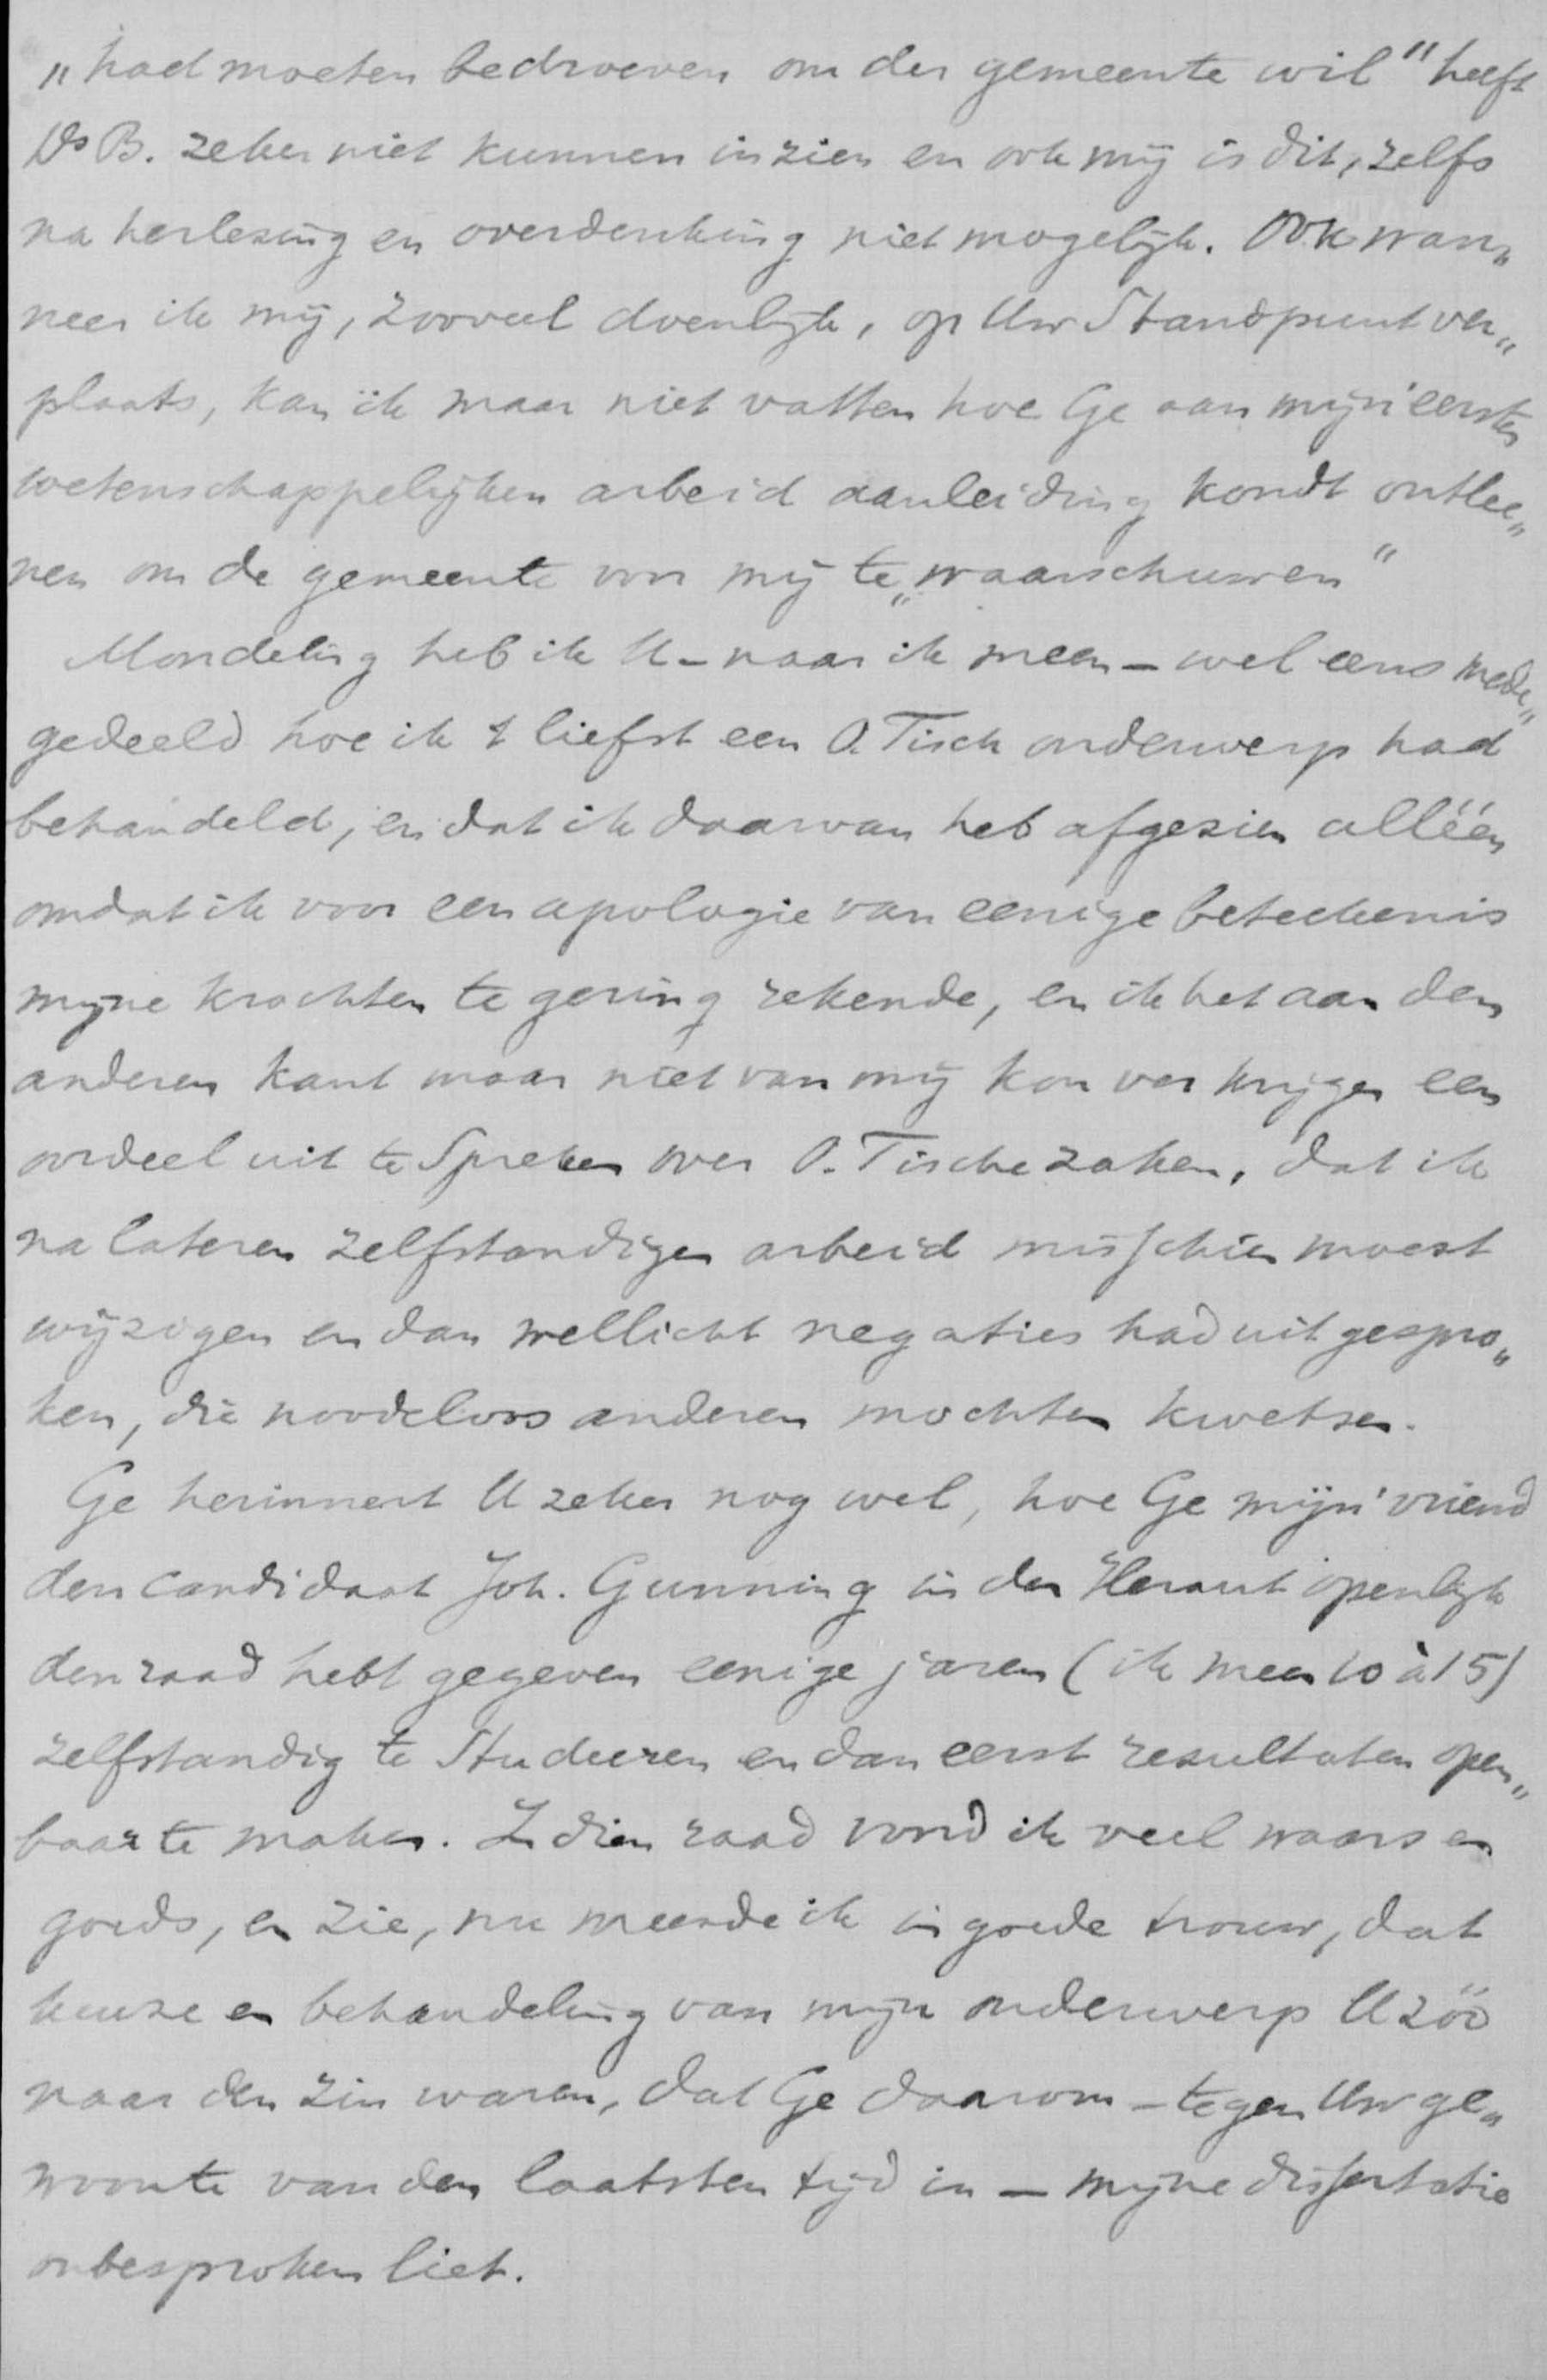 „had moeten bedroeven om der gemeente wil" heeft
Ds B. zeker niet kunnen inzien en ook mij is dit, zelfs
na herlezing en overdenking niet mogelijk. Ook wan„
neer ik mij, zooveel doenlijk, op Uw Standpunt ver„
plaats, kan ik maar niet vatten hoe Ge aan mijn eersten
wetenschappelijken arbeid aanleiding kondt ontlee„
nen om de gemeente voor mij te „waarschuwen"
Mondeling heb ik U – naar ik meen – wel eens mede„
gedeeld hoe ik 't liefst een O. Tisch onderwerp had
behandeld, en dat ik daarvan heb afgezien alléén
omdat ik voor een apologie van eenige beteekenis
mijne krachten te gering rekende, en ik het aan den
anderen kant maar niet van mij kon verkrijgen een
oordeel uit te Spreken over O. Tische zaken, dat ik
na lateren zelfstandigen arbeid misschien moest
wijzigen en dan wellicht negaties had uitgespro„
ken, die noodeloos anderen mochten kwetsen.
Ge herinnert U zeker nog wel, hoe Ge mijn vriend
den Candidaat Joh. Gunning in den Heraut openlijk
den raad hebt gegeven eenige jaren (ik meen 10 à 15)
zelfstandig te Studeeren en dan eerst resultaten open„
baar te maken. In dien raad vond ik veel waars en
goeds, en zie, nu meende ik in goede trouw, dat
keuze en behandeling van mijn onderwerp U zóó
naar den zin waren, dat Ge daarom – tegen Uw ge„
woonte van den laatsten tijd in – mijne dissertatie
onbesproken liet.